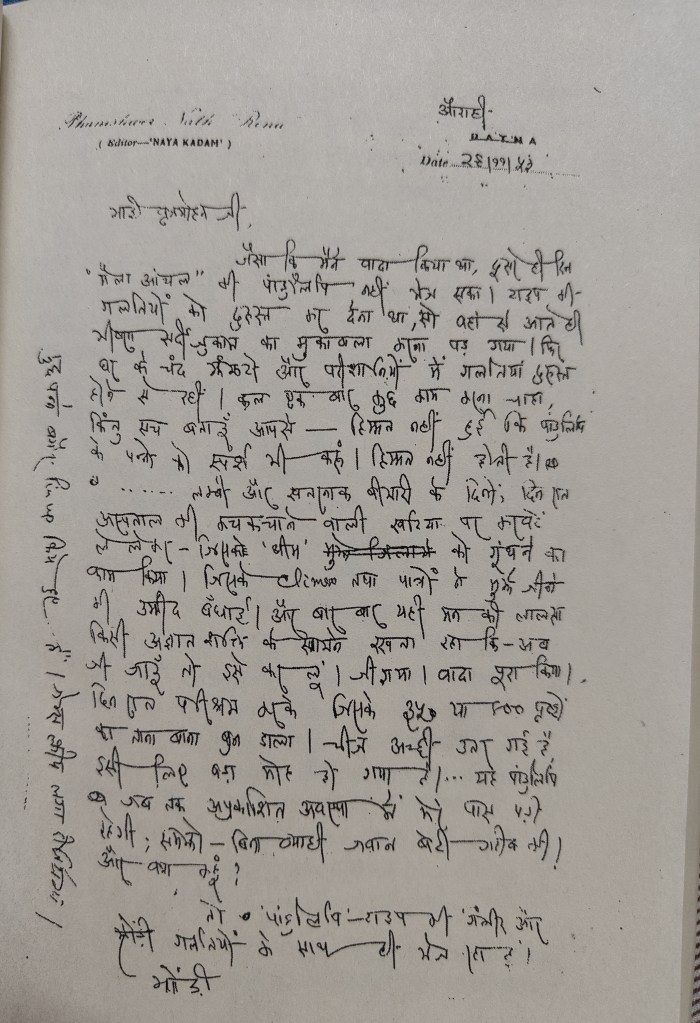 Phanishwar Nath Renu
( Editor—'NAYA KADAM' )
औराही-
PATNA
Date २६।११।५३
भाई बृजमोहन जी,
जैसा कि मैंने वादा किया था, दूसरे ही दिन
"मैला आंचल" की पांडुलिपि नहीं भेज सका। टाइप की-
गलतियों को दुरुस्त कर देना था, सो वहां से आते ही
भीषण सर्दी जुकाम का मुकाबला करना पड़ गया। फिर
घर के चंद झंझटों और परेशानियों में गलतियां दुरुस्त
होने से रहीं। कल एक बार कुछ काम करना चाहा,
किंतु सच बताऊँ आपसे — हिम्मत नहीं हुई कि पांडुलिपि
के पन्नों को स्पर्श भी करूं। हिम्मत नहीं होती है।
...... लम्बी और खतरनाक बीमारी के दिनों; दिन रात
अस्पताल की कचकचाने वाली खटिया पर करवटें
ले लेकर – जिसके 'थीम' को गूंथने का
काम किया। जिसके climax तथा पात्रों ने मुझे जीने
की उम्मीद बँधाई। और बार बार यही मन की लालसा
किसी अज्ञात शक्ति के सामने रखता रहा कि – अब
जी जाऊँ तो इसे कर लूं। जी गया। वादा पूरा किया।
दिन रात परिश्रम करके जिसके ३५० या ४०० पृष्ठों
का ताना बाना बुन डाला। चीज अच्छी उतर गई है
इसी लिए बड़ा मोह हो गया है।... यह पांडुलिपि
जब तक अप्रकाशित अवस्था में मेरे पास पड़ी
रहेगी; समझो – बिना ब्याही जवान बेटी गरीब की!
और क्या कहूँ?
तो पांडुलिपि – टाइप की गंभीर और
भोंड़ी गलतियों के साथ ही भेज रहा हूं।
भोंड़ी